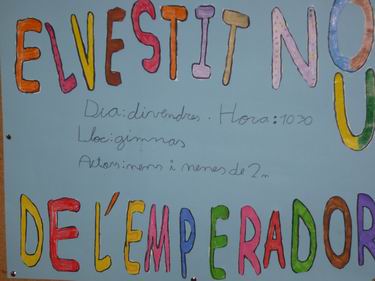 EL VESTIT NOU
Dia: divendres. Hora: 1030
Lloc: gimnas
Actors: nens i nenes de 2n
DE L'EMPERADOR